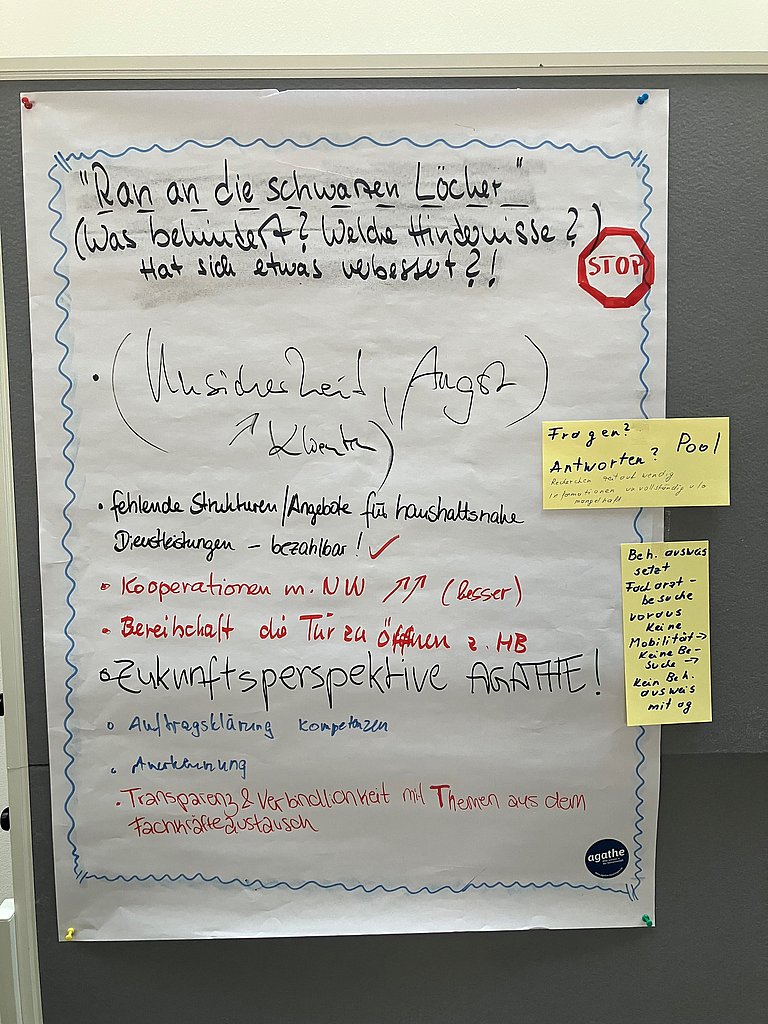 "Ran an die schwarzen Löcher"
(Was behindert? Welche Hindernisse?)
Hat sich etwas verbessert?!
STOP
• (Unsicherheit, Angst)
↗ Klienten)
• fehlende Strukturen/Angebote für haushaltsnahe
Dienstleistungen – bezahlbar! ✓
• Kooperationen m. NW ↗↗ (besser)
• Bereitschaft die Tür zu öffnen z. HB
• Zukunftsperspektive AGATHE!
• Auftragsklärung Kompetenzen
• Anerkennung
• Transparenz & Verbindlichkeit mit Themen aus dem
Fachkräfteaustausch
agathe
Fragen?
Pool
Antworten?
Recherchen zeitaufwendig
Informationen unvollständig u/o
mangelhaft
Beh. ausweis
setzt
Facharzt-
besuche
voraus
Keine
Mobilität →
Keine Be-
suche →
Kein Beh.
ausweis
mit ag